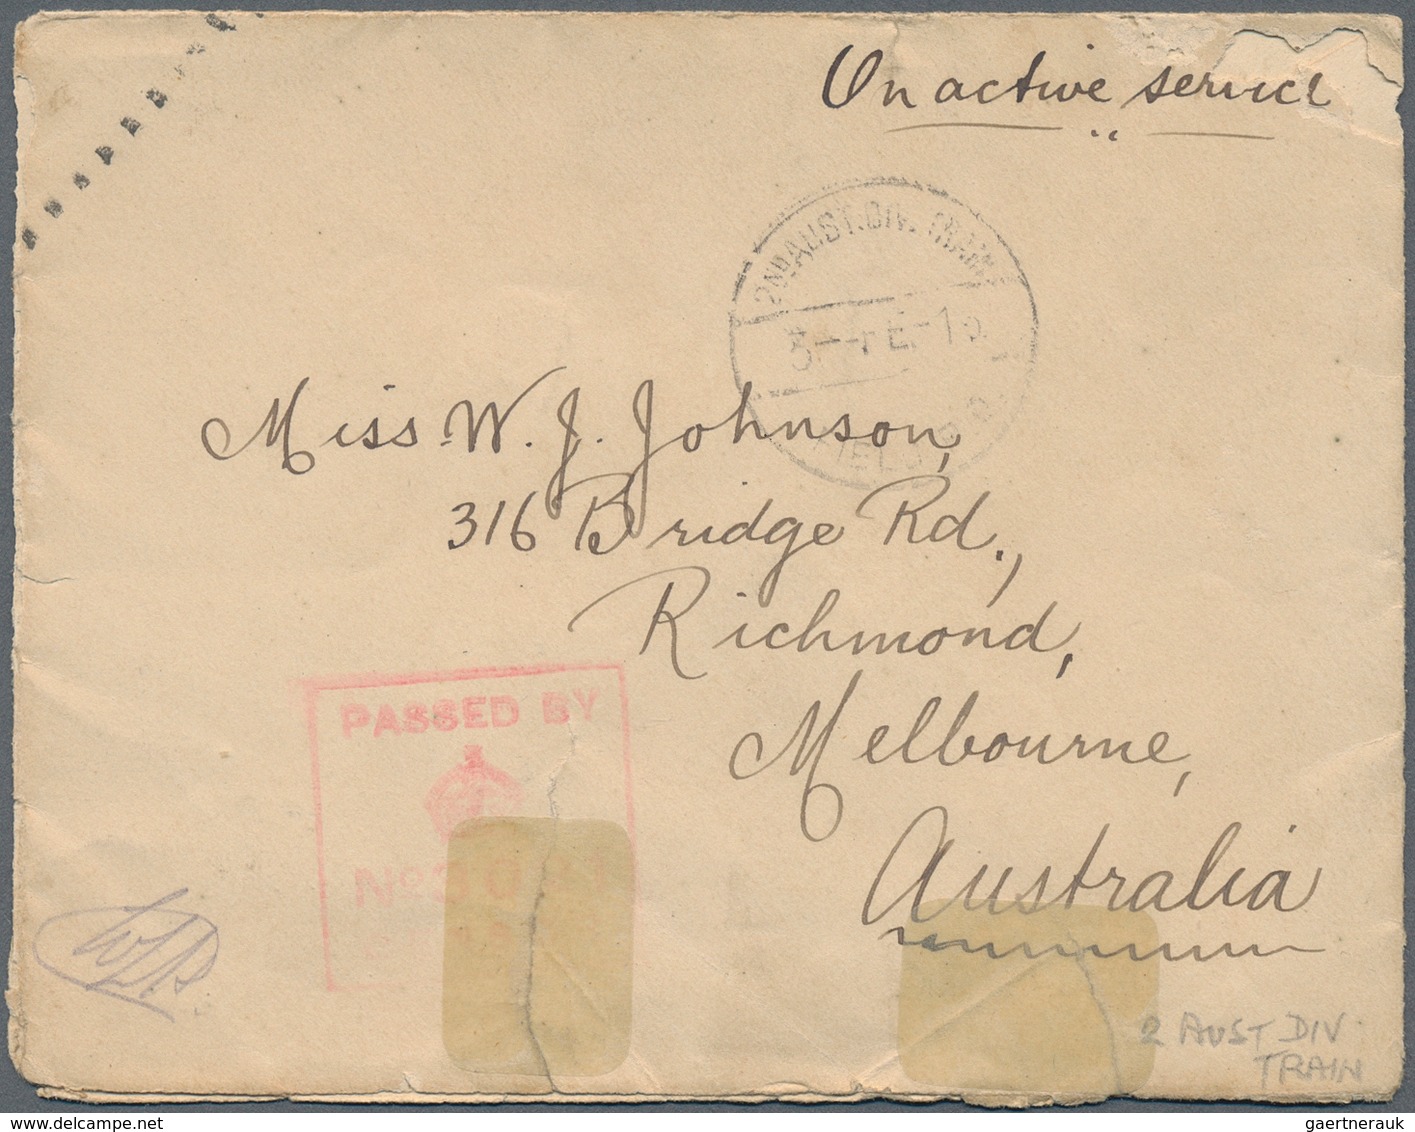 On active service
2ND AUST. DIV. TRAIN
FIELD P.O.
Miss W. J. Johnson,
316 Bridge Rd.,
Richmond,
Melbourne,
Australia
PASSED BY
No
2 AUST DIV
TRAIN
gaertnerauk